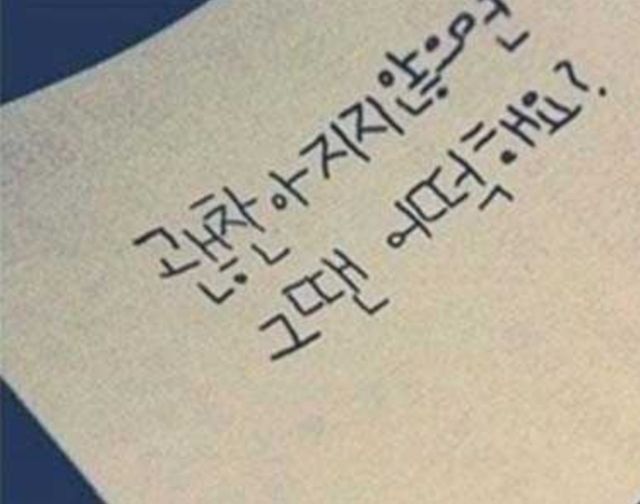 괞찬아지지않으면
그땐 어떡해요?